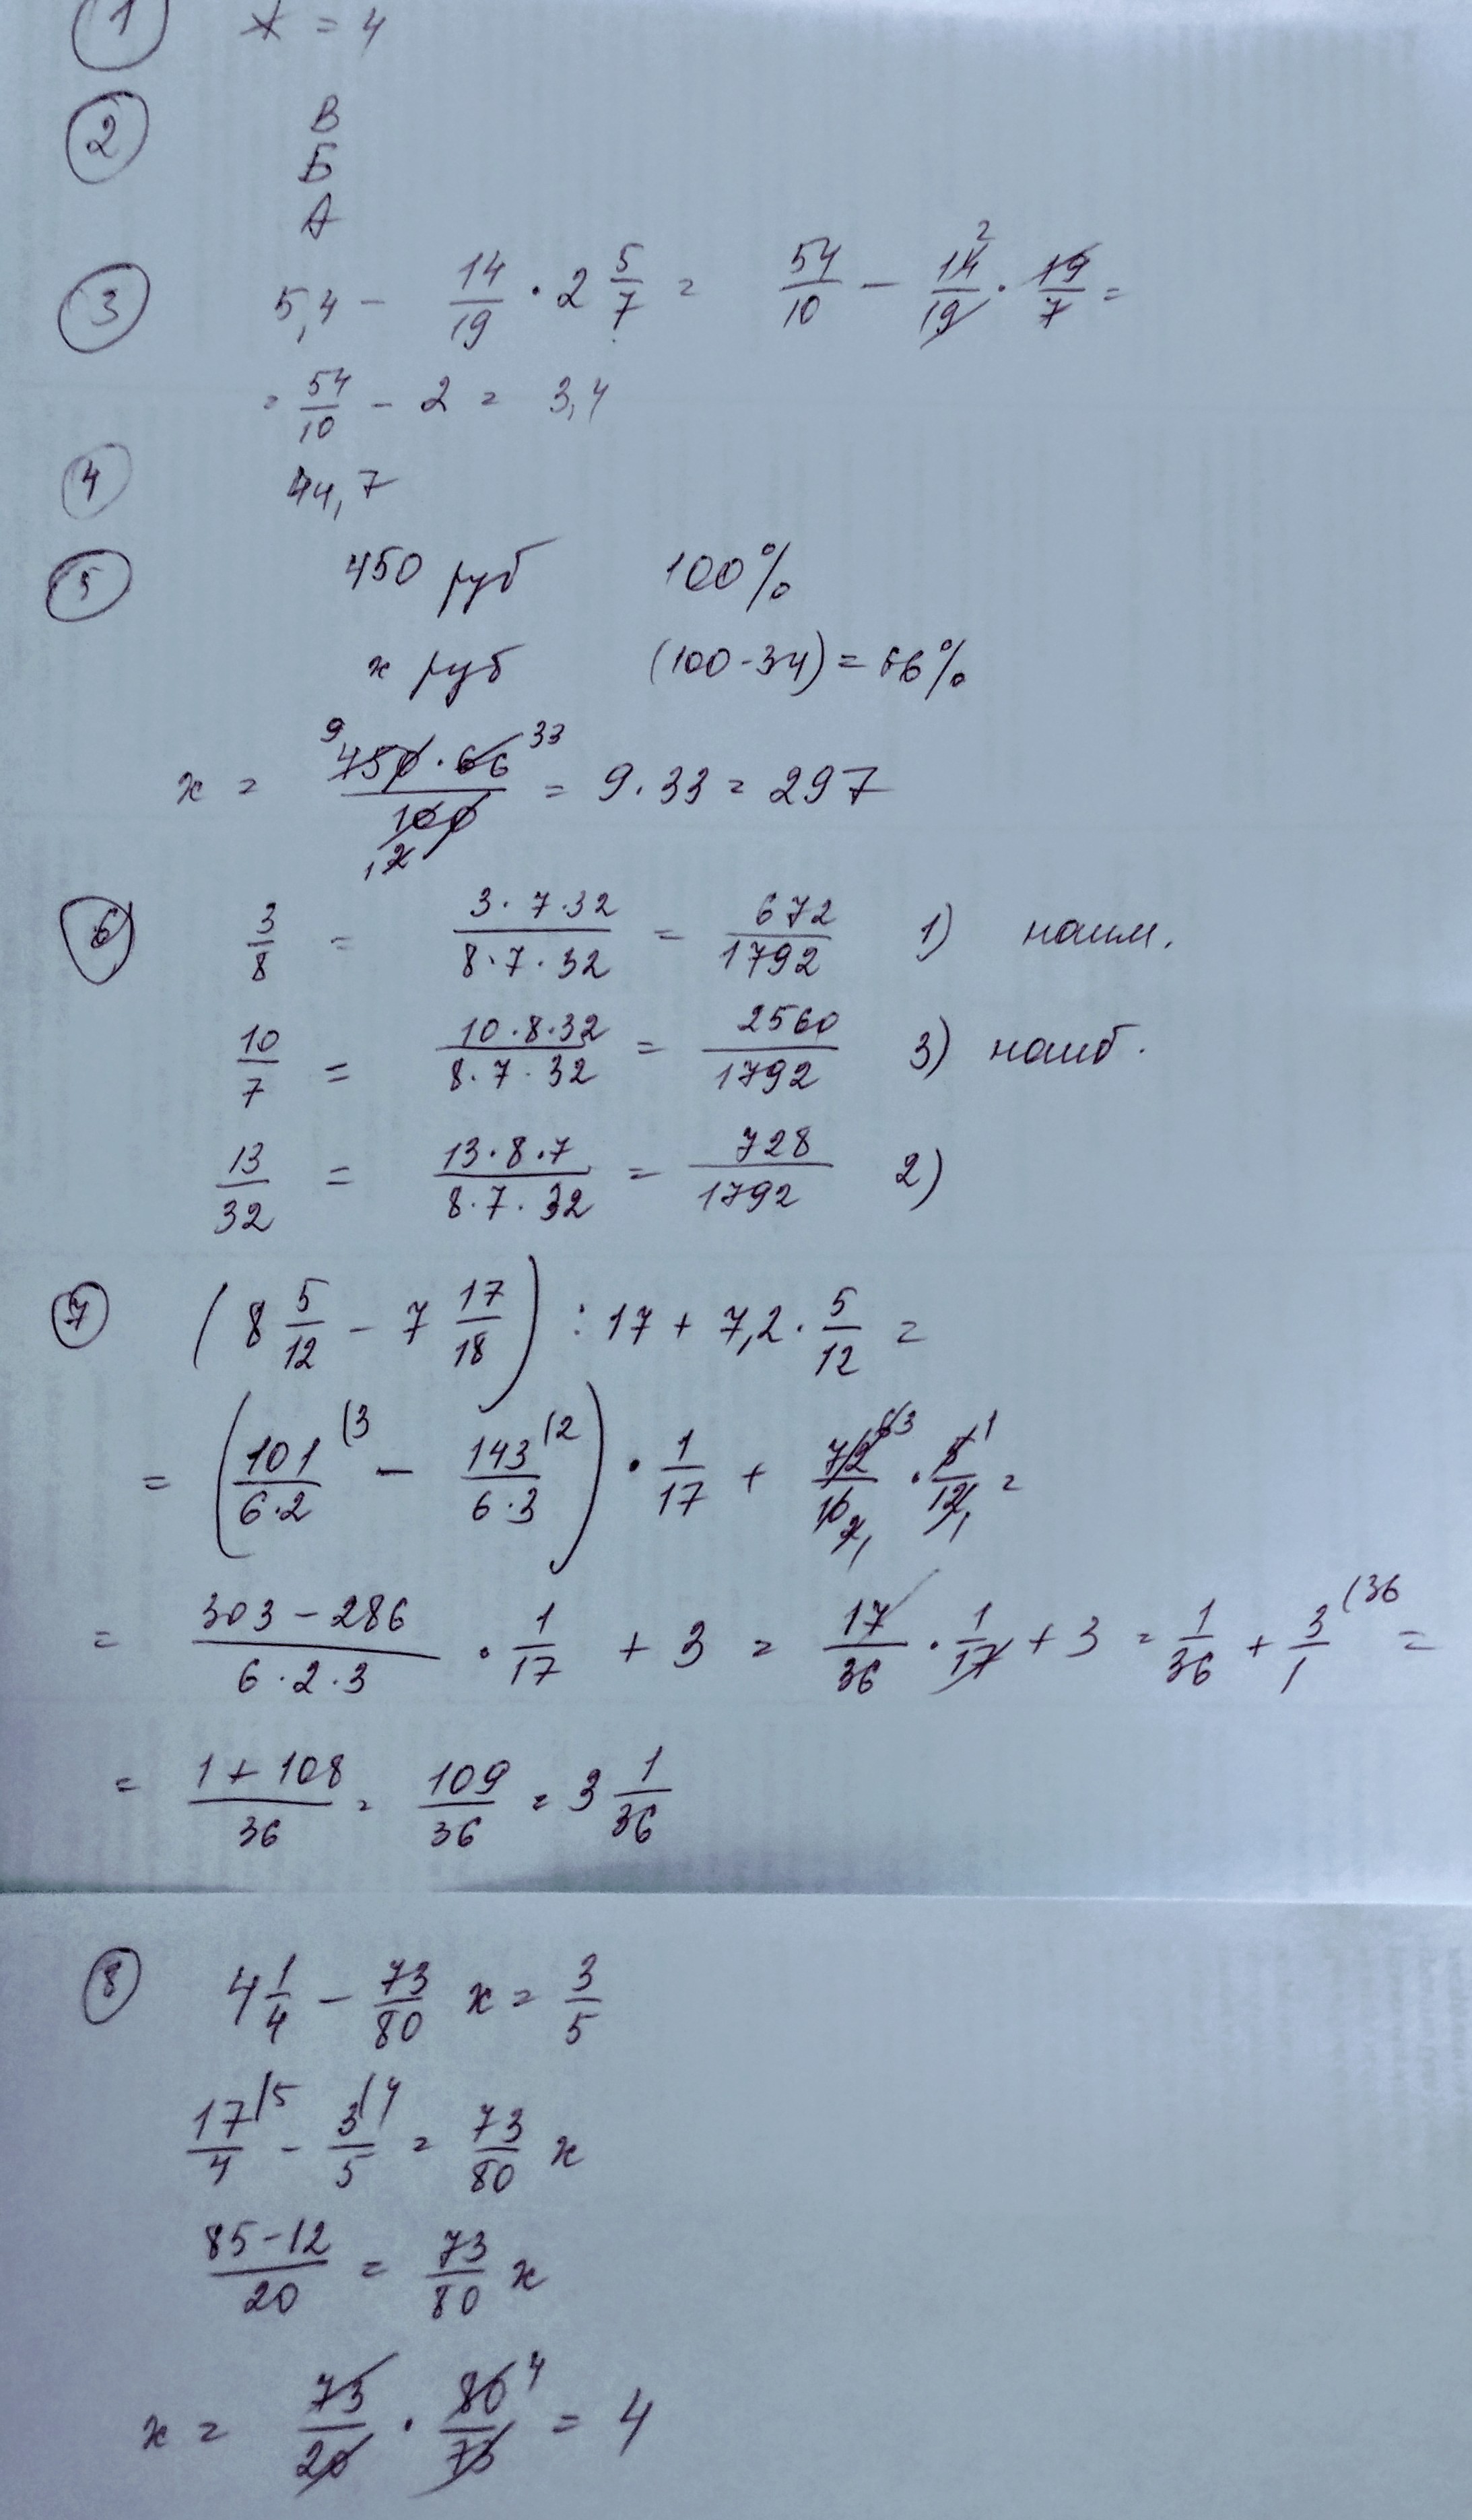 1 * = 4
2 В
Б
А
3 5,4 - 14/19 · 2 5/7 = 54/10 - 14/19 · 19/7 = 2
= 54/10 - 2 = 3,4
4 44,7
5 450 руб 100%
x руб (100-34) = 66%
x = 450·66/100 = 9·33 = 297 9 33 1 2
6 3/8 = 3·7·32/8·7·32 = 672/1792 1) наим.
10/7 = 10·8·32/8·7·32 = 2560/1792 3) наиб.
13/32 = 13·8·7/8·7·32 = 728/1792 2)
7 (8 5/12 - 7 17/18) : 17 + 7,2 · 5/12 =
= (101/6·2 (3 - 143/6·3 (2) · 1/17 + 72/10 · 5/12 = 6 3 1 2 1 1
= 303-286/6·2·3 · 1/17 + 3 = 17/36 · 1/17 + 3 = 1/36 + 3/1 (36 =
= 1+108/36 = 109/36 = 3 1/36
8 4 1/4 - 73/80 x = 3/5
17/4 |5 - 3/5 |4 = 73/80 x
85-12/20 = 73/80 x
x = 73/20 · 80/73 = 4 4